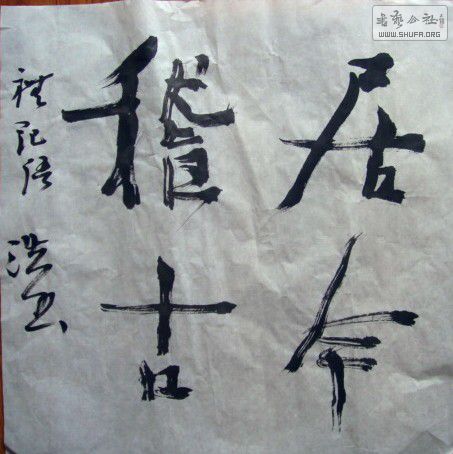 居今
稽古
礼记语
浩书
书艺公社
WWW.SHUFA.ORG